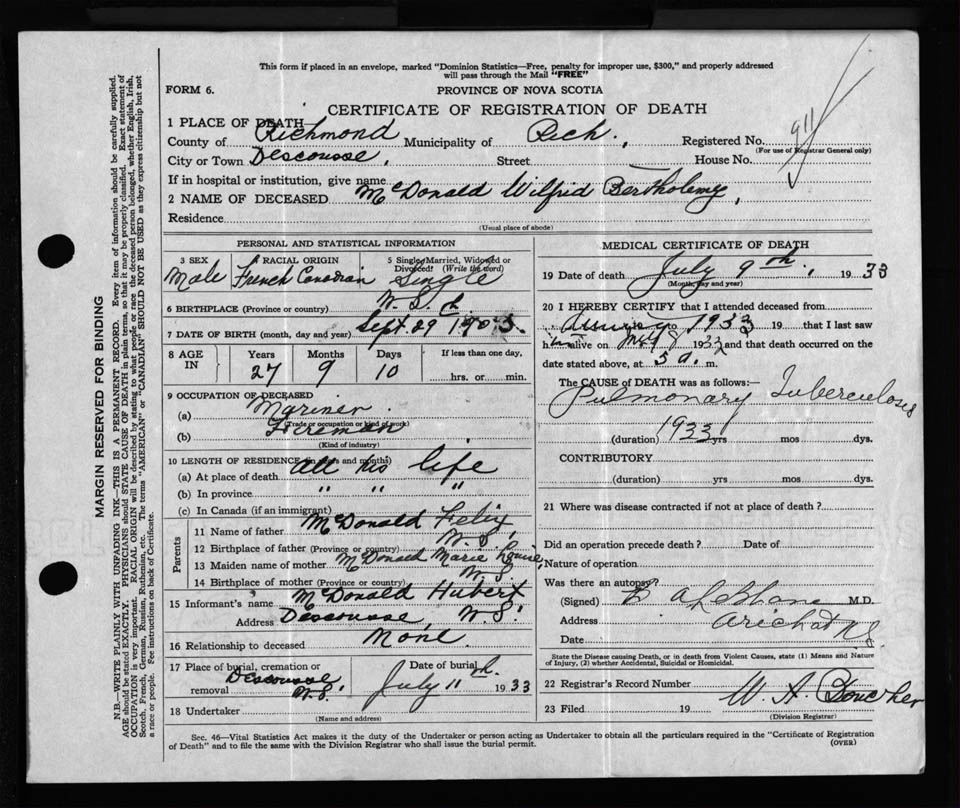 This form if placed in an envelope, marked "Dominion Statistics—Free, penalty for improper use, $300," and properly addressed
will pass through the Mail "FREE"
FORM 6.
PROVINCE OF NOVA SCOTIA
CERTIFICATE OF REGISTRATION OF DEATH
1 PLACE OF DEATH—
County of Richmond Municipality of Rich. Registered No. 911
(For use of Registrar General only)
City or Town Descousse, Street House No.
If in hospital or institution, give name
2 NAME OF DECEASED McDonald Wilfrid Bertholemy,
Residence
(Usual place of abode)
PERSONAL AND STATISTICAL INFORMATION
3 SEX
Male
4 RACIAL ORIGIN
French Canadian
5 Single, Married, Widowed or
Divorced? (Write the word)
Single
6 BIRTHPLACE (Province or country) N.S.
7 DATE OF BIRTH (month, day and year) Sept. 29 1905.
8 AGE
IN
Years
27
Months
9
Days
10
If less than one day,
hrs. or min.
9 OCCUPATION OF DECEASED
(a) Mariner
(Trade or occupation or kind of work)
(b) Fireman
(Kind of industry)
10 LENGTH OF RESIDENCE (in years and months)
(a) At place of death All his life
(b) In province " " "
(c) In Canada (if an immigrant)
Parents
11 Name of father McDonald Felix
12 Birthplace of father (Province or country) N.S.
13 Maiden name of mother McDonald Marie
14 Birthplace of mother (Province or country) N.S.
15 Informant's name McDonald Hubert
Address Descousse, N.S.
16 Relationship to deceased None
17 Place of burial, cremation or
removal Descousse N.S.
Date of burial
July 11th 1933
18 Undertaker
(Name and address)
MEDICAL CERTIFICATE OF DEATH
19 Date of death July 9th, 1933
(Month, day and year)
20 I HEREBY CERTIFY that I attended deceased from
1933 19 that I last saw
h alive on 1933 and that death occurred on the
date stated above, at 5 a. m.
The CAUSE OF DEATH was as follows:—
Pulmonary Tuberculosis
(duration) 1933 yrs mos dys.
CONTRIBUTORY
(duration) yrs mos dys.
21 Where was disease contracted if not at place of death?
Did an operation precede death? Date of
Nature of operation
Was there an autopsy?
(Signed) B A LeBlanc M.D.
Address Arichat NS
Date
State the Disease causing Death, or in death from Violent Causes, state (1) Means and Nature
of Injury, (2) whether Accidental, Suicidal or Homicidal.
22 Registrar's Record Number
23 Filed 19 W. A. Boucher
(Division Registrar)
Sec. 46—Vital Statistics Act makes it the duty of the Undertaker or person acting as Undertaker to obtain all the particulars required in the "Certificate of Registration
of Death" and to file the same with the Division Registrar who shall issue the burial permit.
(OVER)
MARGIN RESERVED FOR BINDING
N.B.—WRITE PLAINLY WITH UNFADING INK—THIS IS A PERMANENT RECORD. Every item of information should be carefully supplied.
AGE should be stated EXACTLY. PHYSICIANS should STATE CAUSE OF DEATH in plain terms, so that it may be properly classified. Exact statement of
OCCUPATION is very important. RACIAL ORIGIN will be described by stating to what people or race the deceased person belonged, whether English, Irish,
Scotch, French, German, Russian, Ruthenian, etc. The terms "AMERICAN" or "CANADIAN" SHOULD NOT BE USED as they express citizenship but not
a race or people. Fee instructions on back of Certificate.